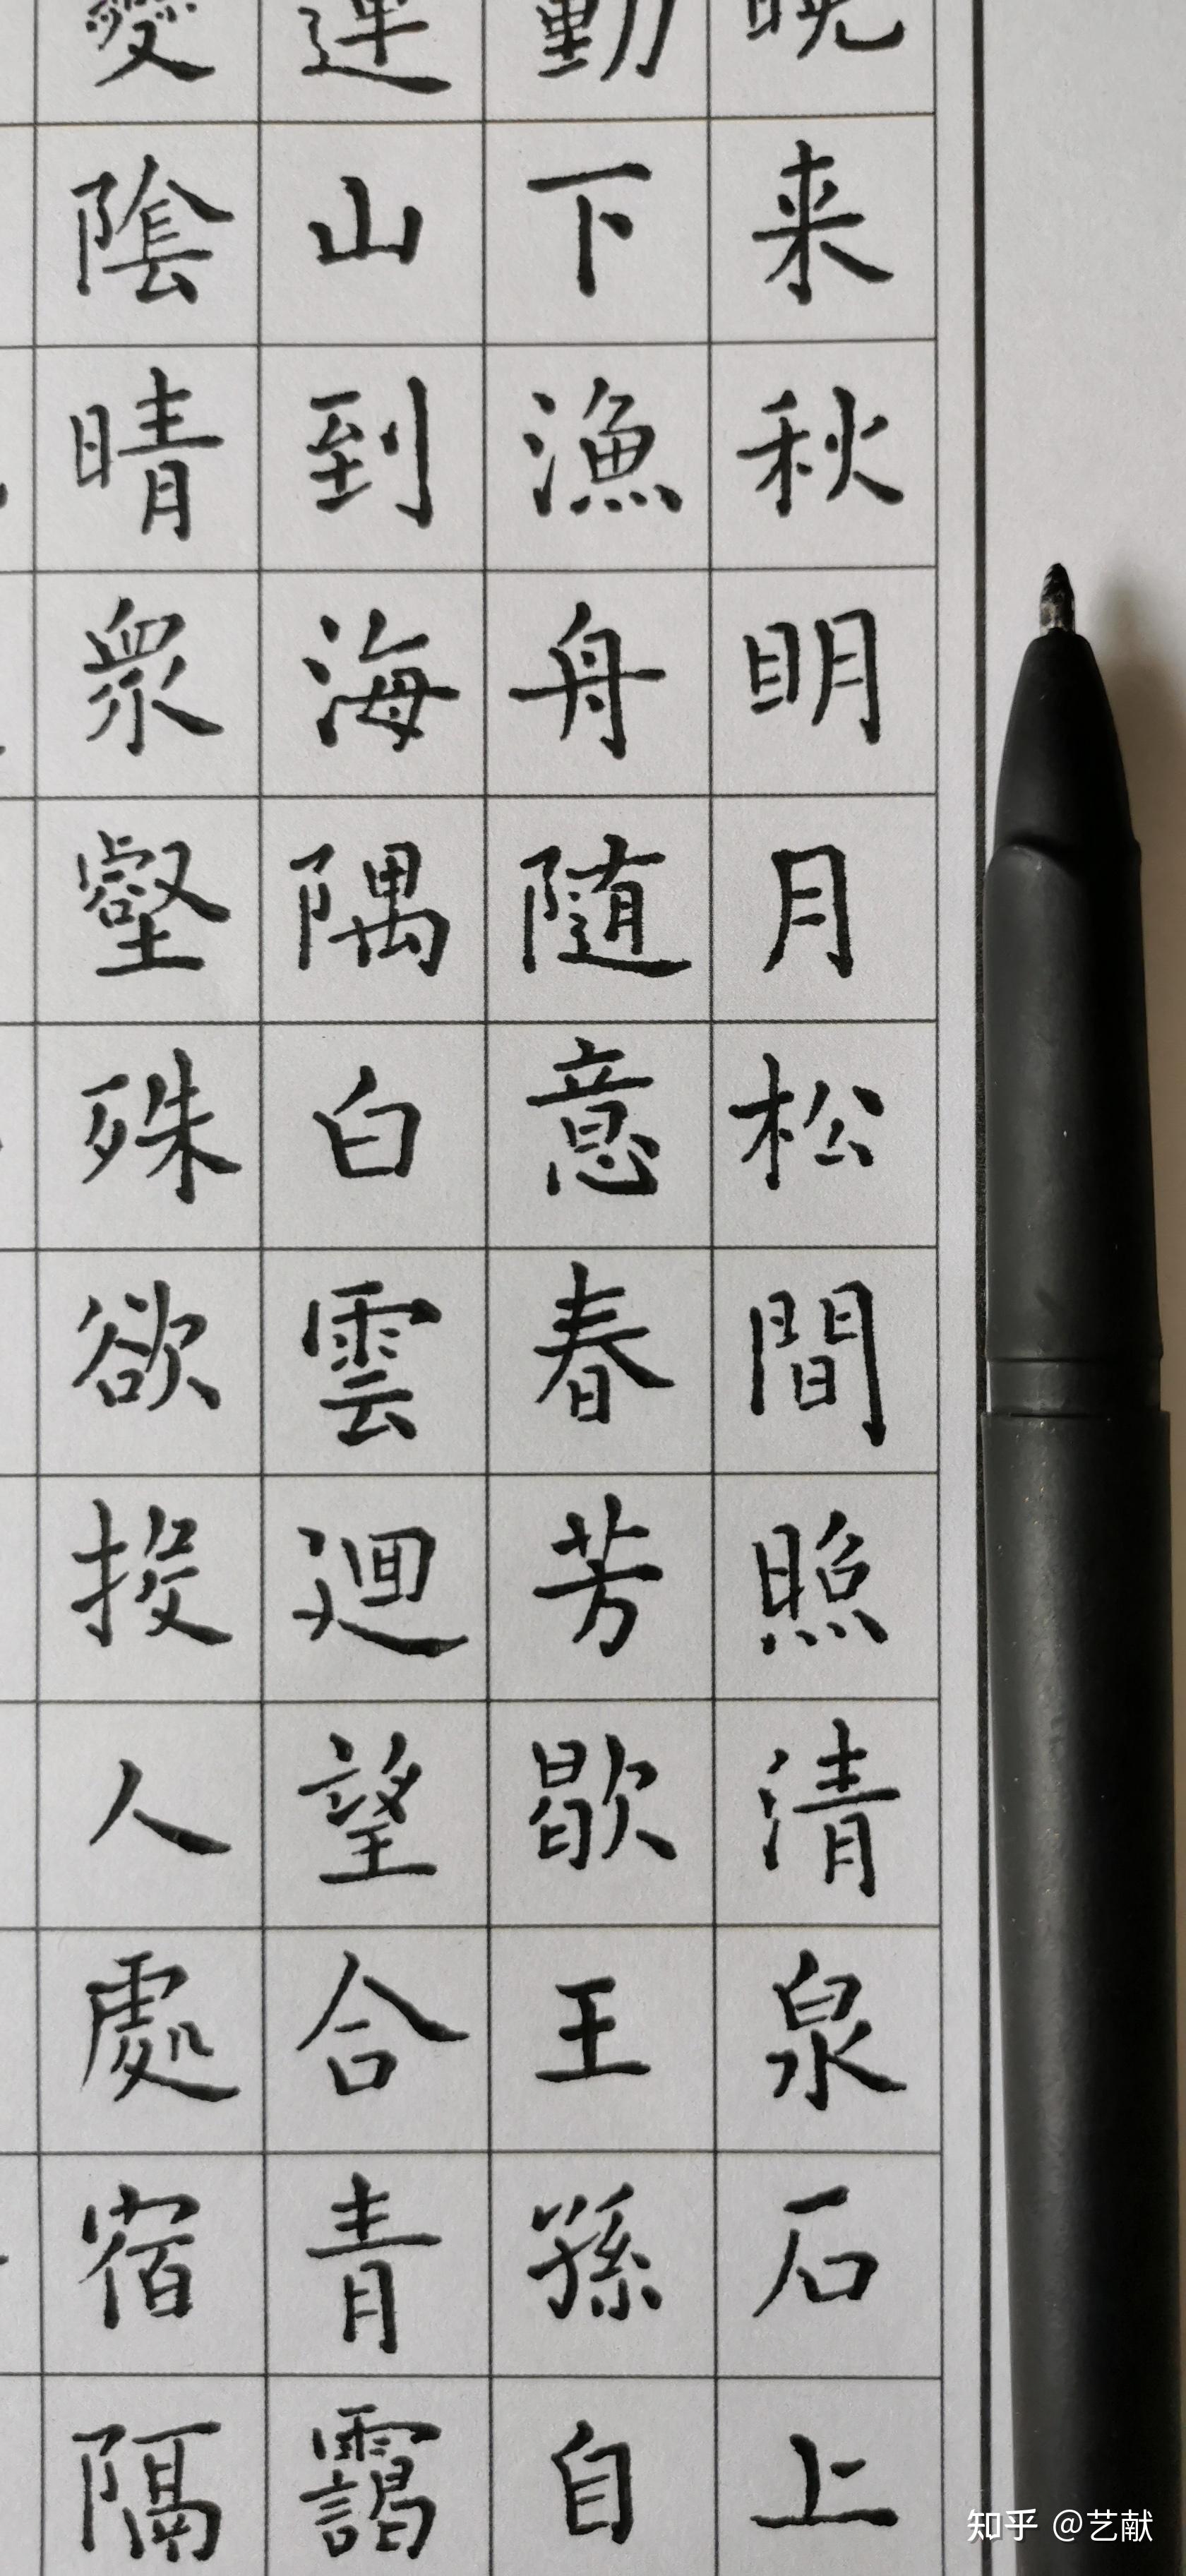 晚来秋明月松間照清泉石上
動下漁舟随意春芳歇王孫自
連山到海隅白雲迴望合青靄
變陰晴衆壑殊欲投人處宿隔
知乎 @艺献